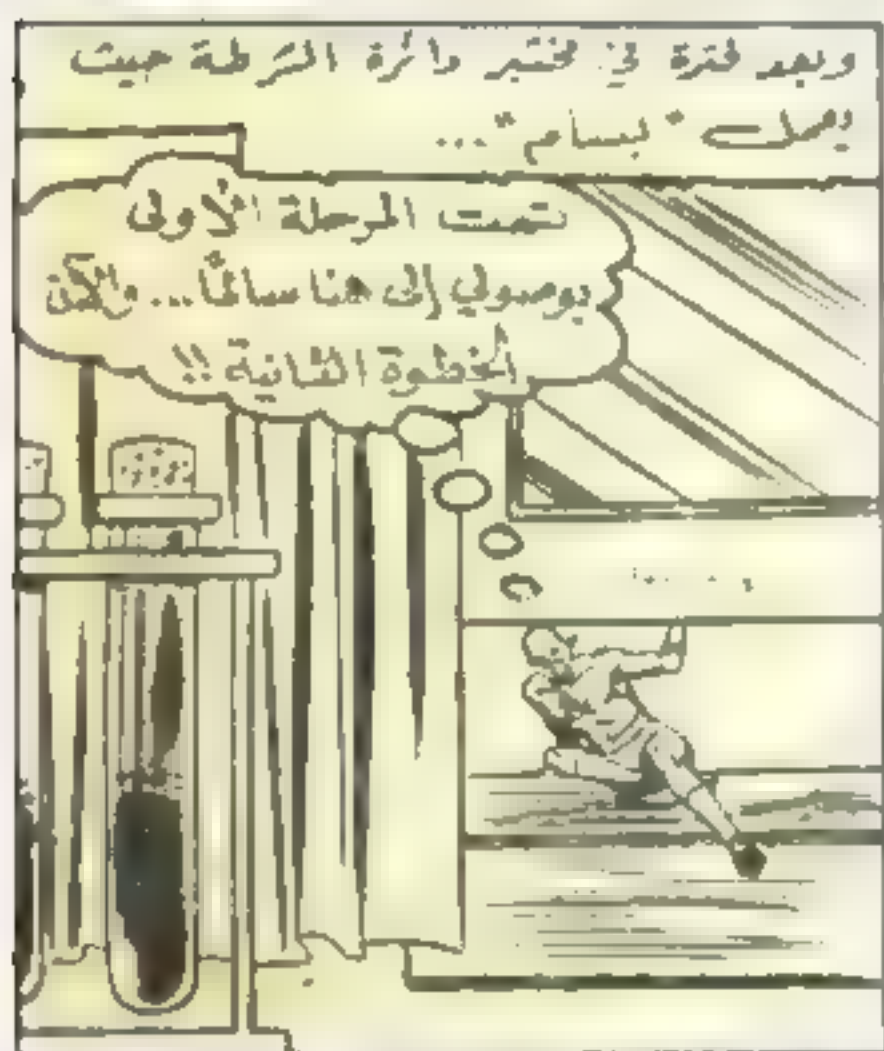 وبعد فترة في مختبر دائرة الشرطة حيث
يعمل "بسام"...
تمت المرحلة الأولى
بوصولي إلى هنا سالمًا... ولكن
الخطوة الثانية !!